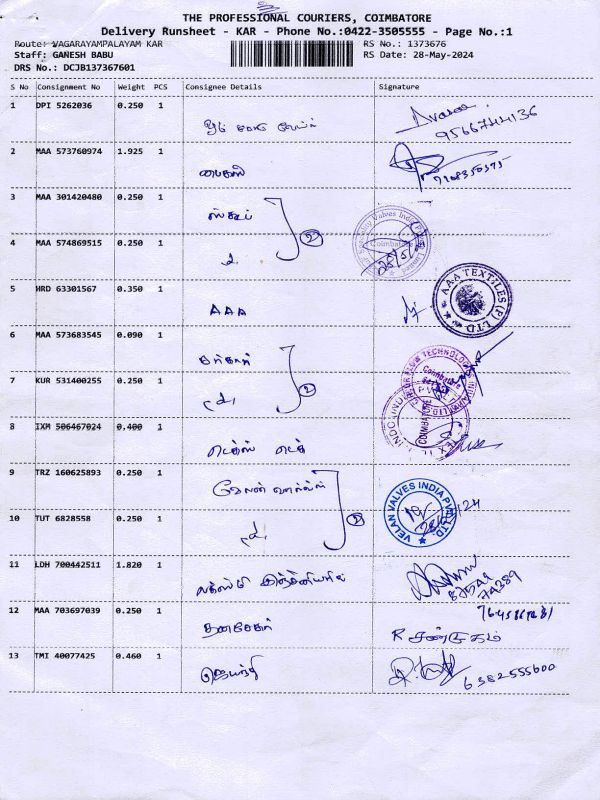 THE PROFESSIONAL COURIERS, COIMBATORE
Delivery Runsheet - KAR - Phone No.:0422-3505555 - Page No.:1
Route: VAGARAYAMPALAYAM KAR RS No.: 1373676
Staff: GANESH BABU RS Date: 28-May-2024
DRS No.: DCJB137367601
S No Consignment No Weight PCS Consignee Details Signature
1 DPI 5262036 0.250 1
9566744136
2 MAA 573760974 1.925 1
3 MAA 301420480 0.250 1
2
4 MAA 574869515 0.250 1
Coimbatore
5 HRD 63301567 0.350 1 AAA
AAA TEXTILES (P) LTD
6 MAA 573683545 0.090 1
2
7 KUR 531400255 0.250 1
Coimbatore
8 IXM 506467024 0.400 1
COIMBATORE
9 TRZ 160625893 0.250 1
2
10 TUT 6828558 0.250 1
VELAN VALVES INDIA PVT. LTD.
11 LDH 700442511 1.820 1 லக்ஸ்மி இஞ்சினியரிங்
12 MAA 703697039 0.250 1 தனசேகர் R சண்முகம்
13 TMI 40077425 0.460 1 ஜெயந்தி
6382555600